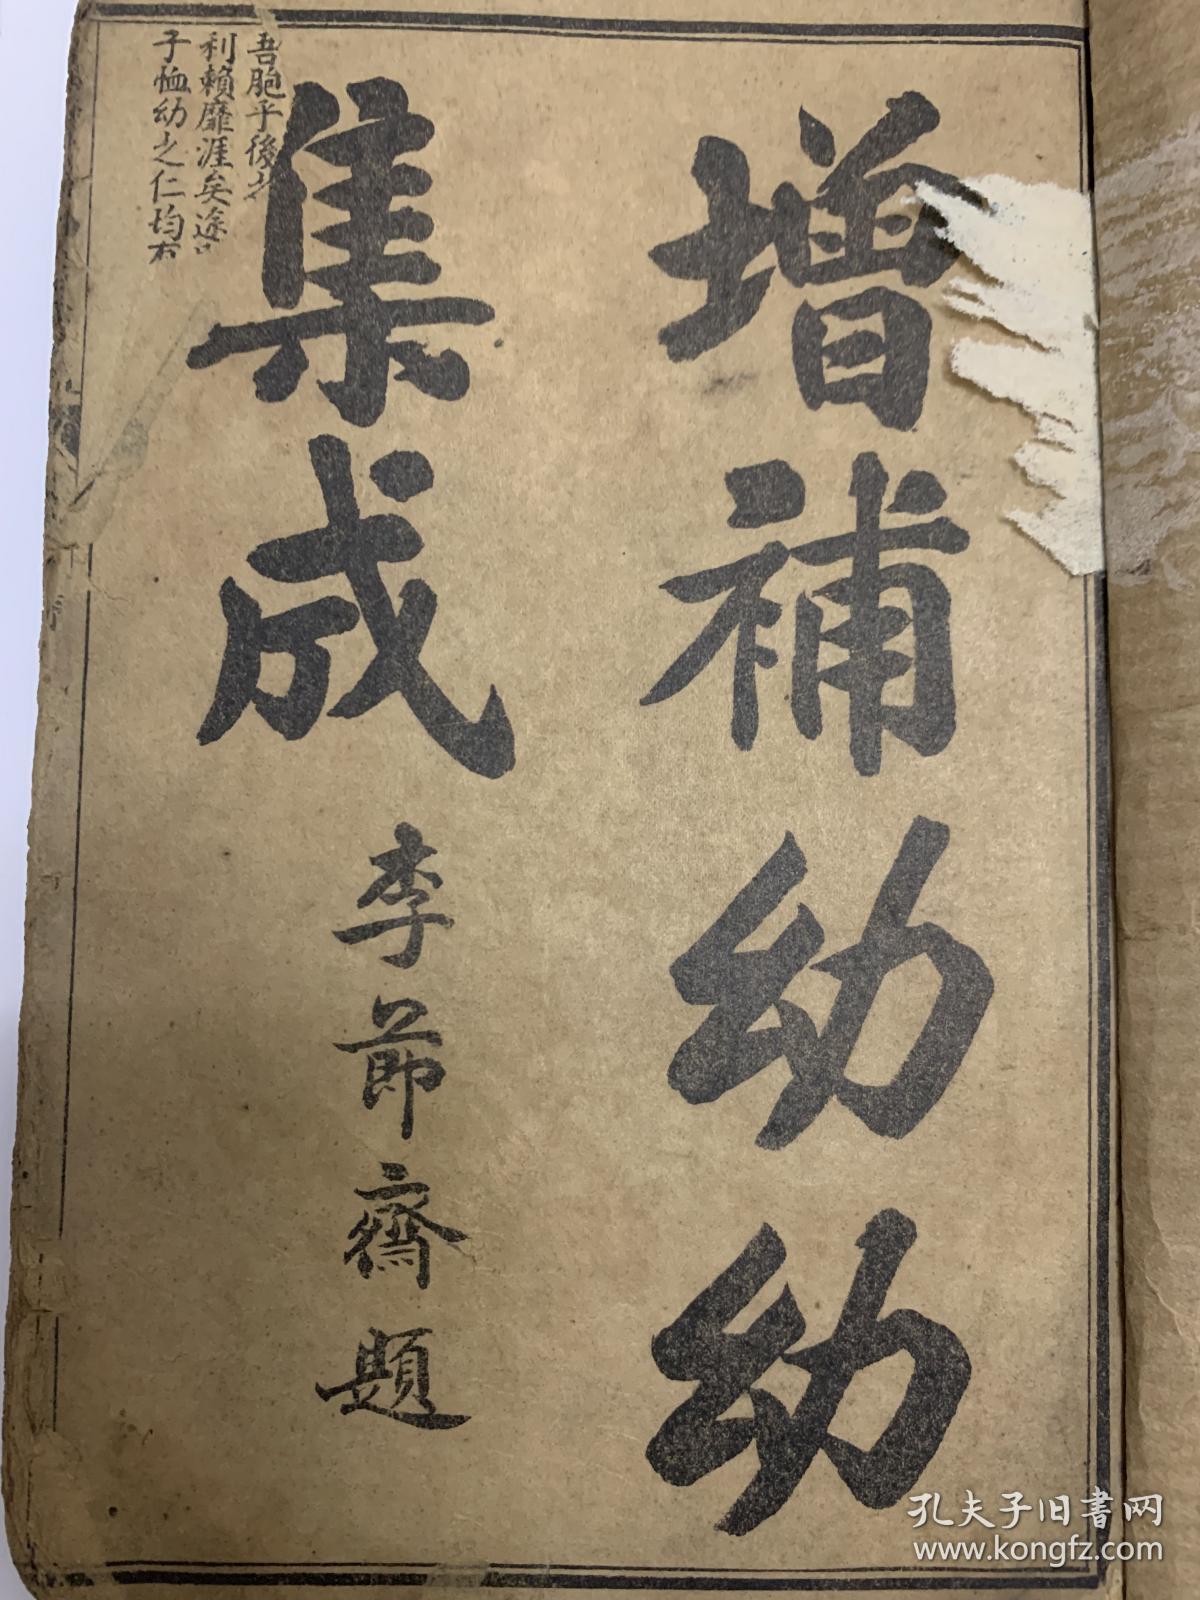 增補幼幼
集成
李節齋題
吾胞乎後
利賴靡涯矣途
子恤幼之仁均有
孔夫子旧書网
www.kongfz.com